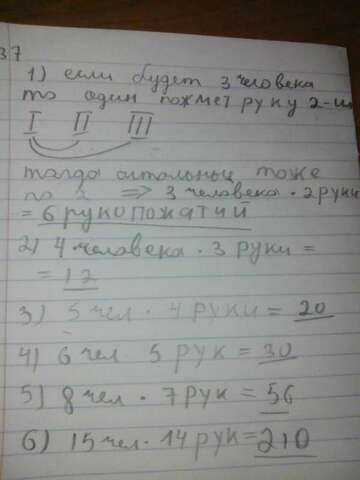 37
1) если будет 3 человека
то один пожмёт руку 2-им
I II III
тогда остальные тоже
по 2 => 3 человека · 2 руки
= 6 рукопожатий
2) 4 человека · 3 руки =
= 12
3) 5 чел · 4 руки = 20
4) 6 чел 5 рук = 30
5) 8 чел · 7 рук = 56
6) 15 чел · 14 рук = 210